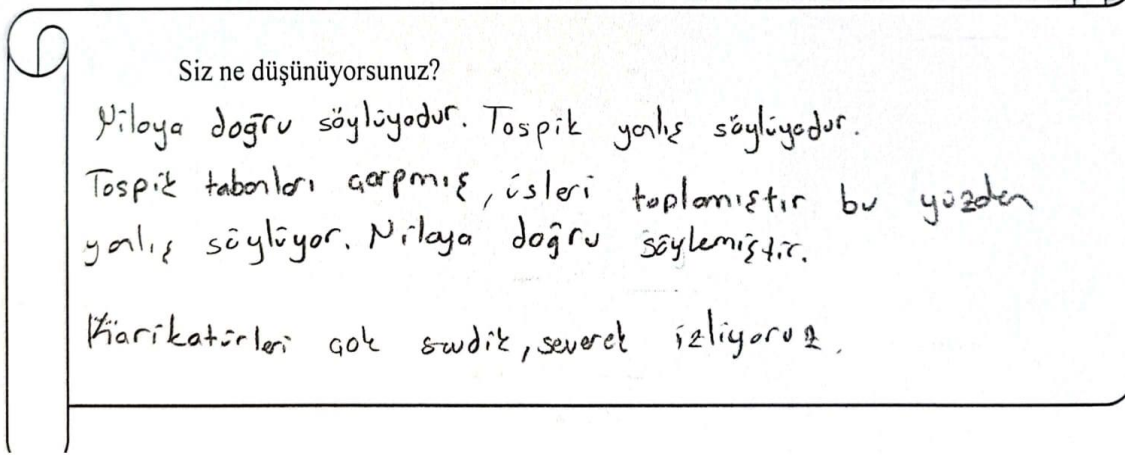 Siz ne düşünüyorsunuz?
Niloya doğru söylüyodur. Tospik yanlış söylüyodur.
Tospik tabanları çarpmış, üsleri toplamıştır bu yüzden
yanlış söylüyor. Niloya doğru söylemiştir.
Karikatürleri çok sevdik, severek izliyoruz.